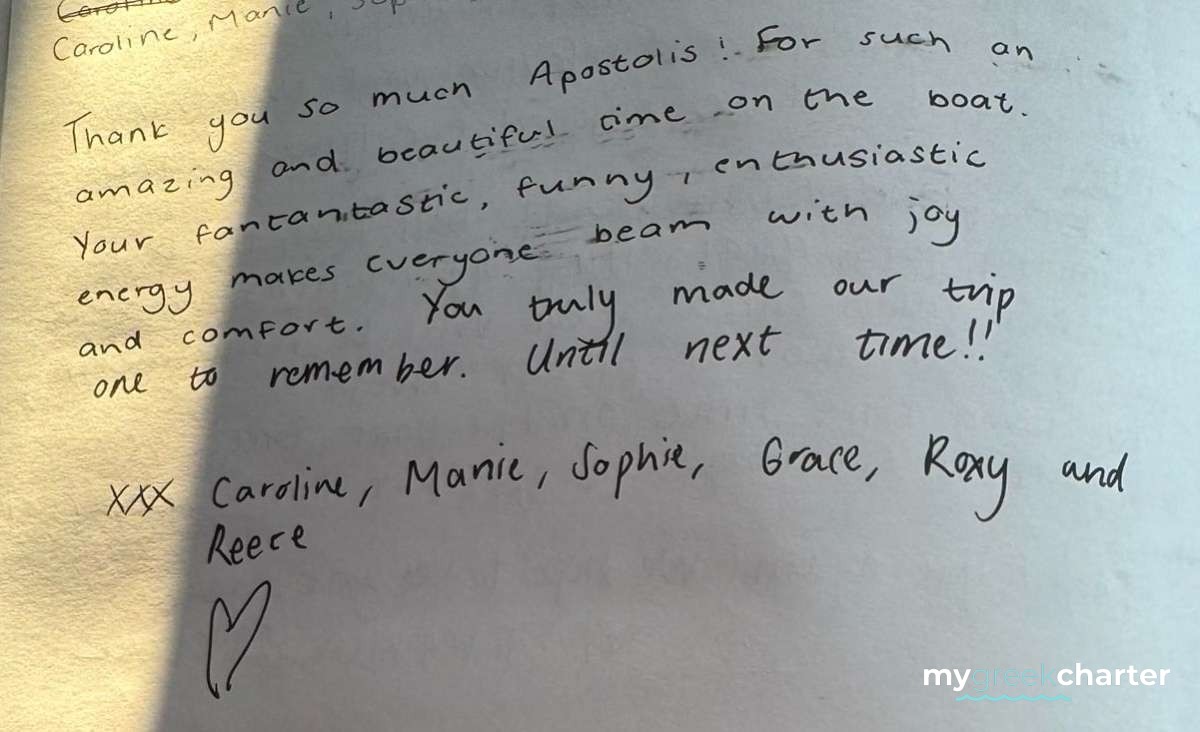 Caroline, Manie,
Thank you so much Apostolis! For such an
amazing and beautiful time on the boat.
Your fantantastic, funny, enthusiastic
energy makes everyone beam with joy
and comfort. You truly made our trip
one to remember. Until next time!!
xxx Caroline, Manie, Sophie, Grace, Roxy and
Reece
mygreekcharter